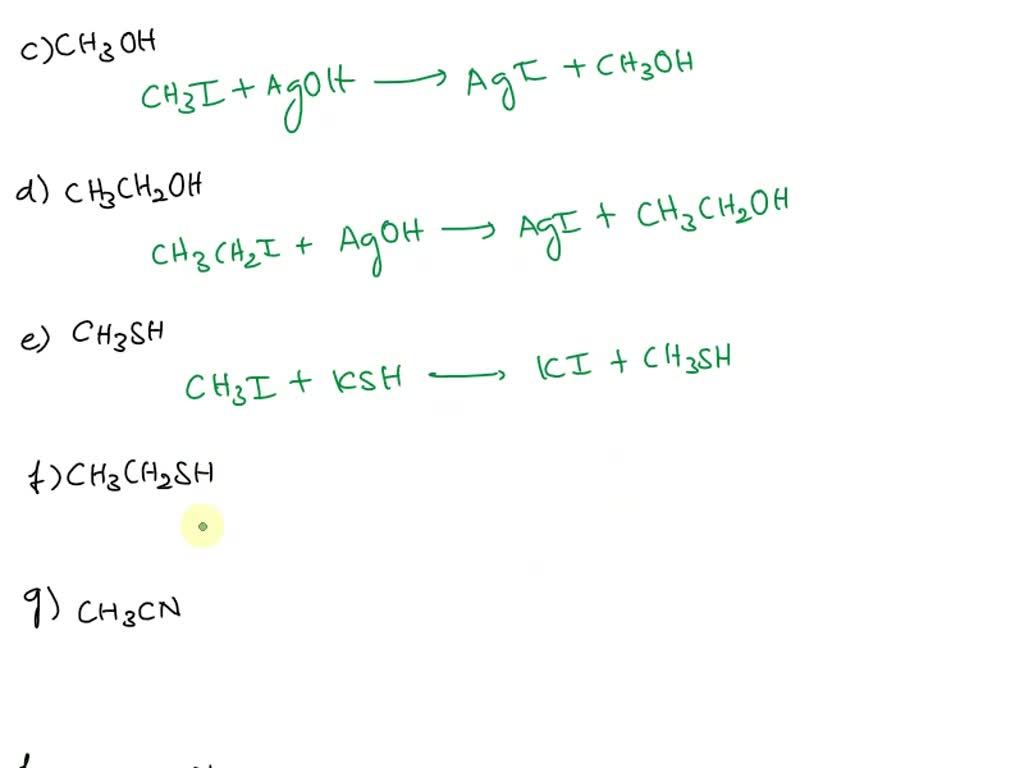 c) CH3OH
CH3I + AgOH → AgI + CH3OH
d) CH3CH2OH
CH3CH2I + AgOH → AgI + CH3CH2OH
e) CH3SH
CH3I + KSH → KI + CH3SH
f) CH3CH2SH
g) CH3CN